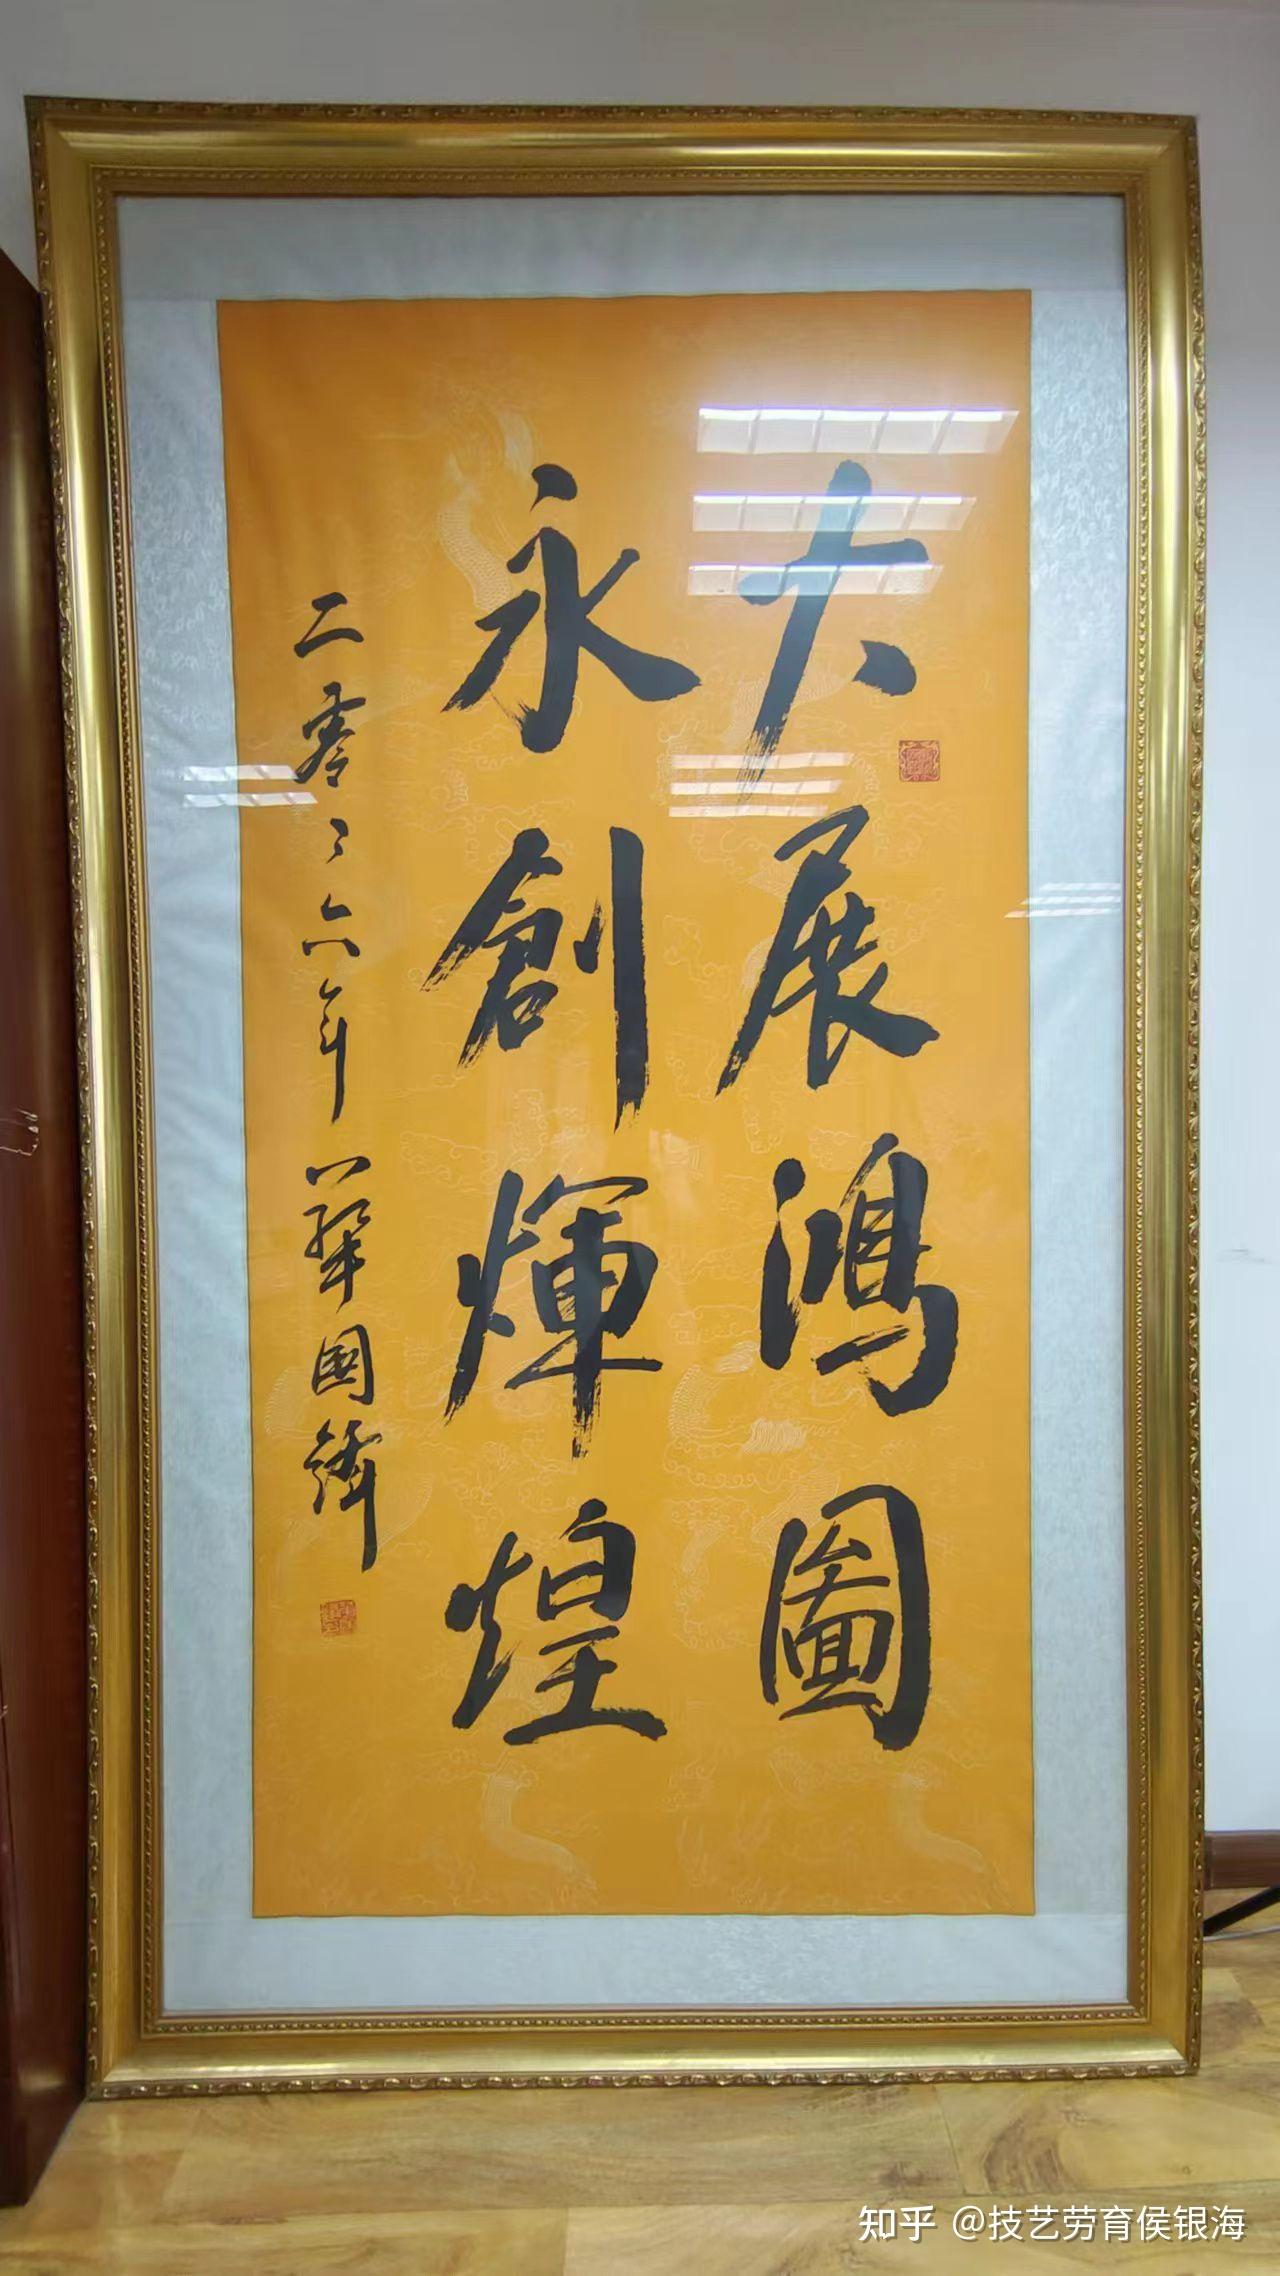 大展鴻圖
永創輝煌
二零零六年 華國鋒
知乎 @技艺劳育侯银海